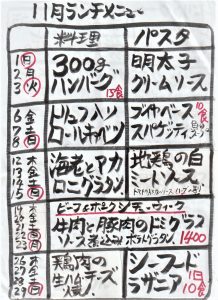 11月ランチメニュー
料理 パスタ
1(日)
2 月
3(火)
300g
ハンバーグ
15食
明太子
クリームソース
6 金
7 土
8(日)
トリュフ入り
ロールキャベツ
ブイヤベース
スパゲティ
12 木
13 金
14 土
15(日)
海老とアカ
ロニグラタン
地鶏の白
ミートソース
ビーフ&ポークシチューウィーク
牛肉と豚肉のドミグラ
ソース煮込み ポテトグラタン
1400
26 木
27 金
28 土
29(日)
鶏肉の
生ハムチーズ
焼
シーフード
ラザニア
1日
10食